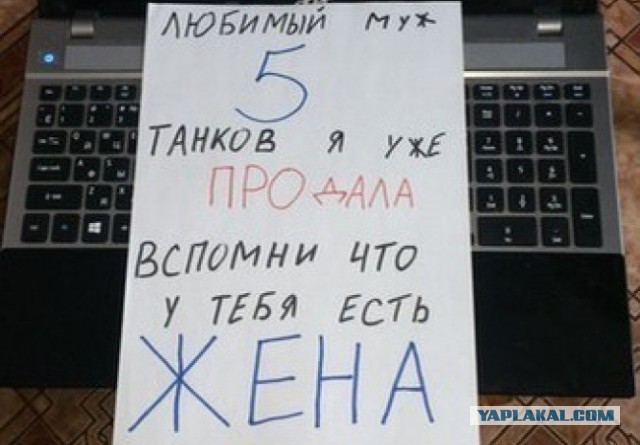 ЛЮБИМЫЙ МУЖ
5
ТАНКОВ Я УЖЕ
ПРОДАЛА
ВСПОМНИ ЧТО
У ТЕБЯ ЕСТЬ
ЖЕНА
YAPLAKAL.COM